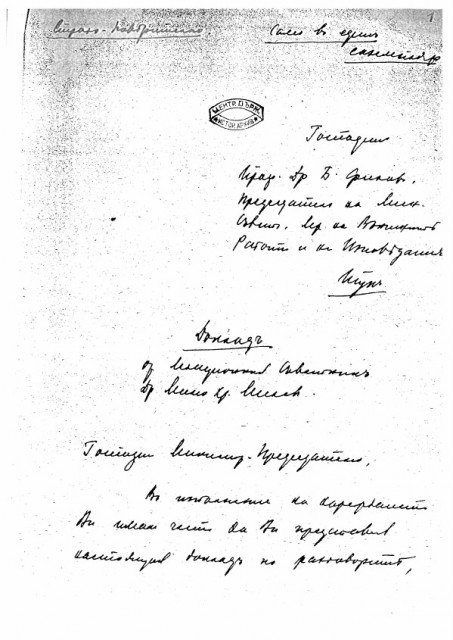 Строго-Поверително
Само въ единъ
екземпляр
1
ЦЕНТР. ДЪРЖ.
ИСТОР. АРХИВ
Господин
Проф. Др Б. Филов,
Председател на Мин.
Съвет, М-р на Външните
Работи и на Изповеданията
Тукъ
Докладъ
от Легационния Съветникъ
Др
Господин Министр-Председателю,
В изпълнение на нареждането
Ви имам честь да Ви представя
настоящия докладъ по разговорите,